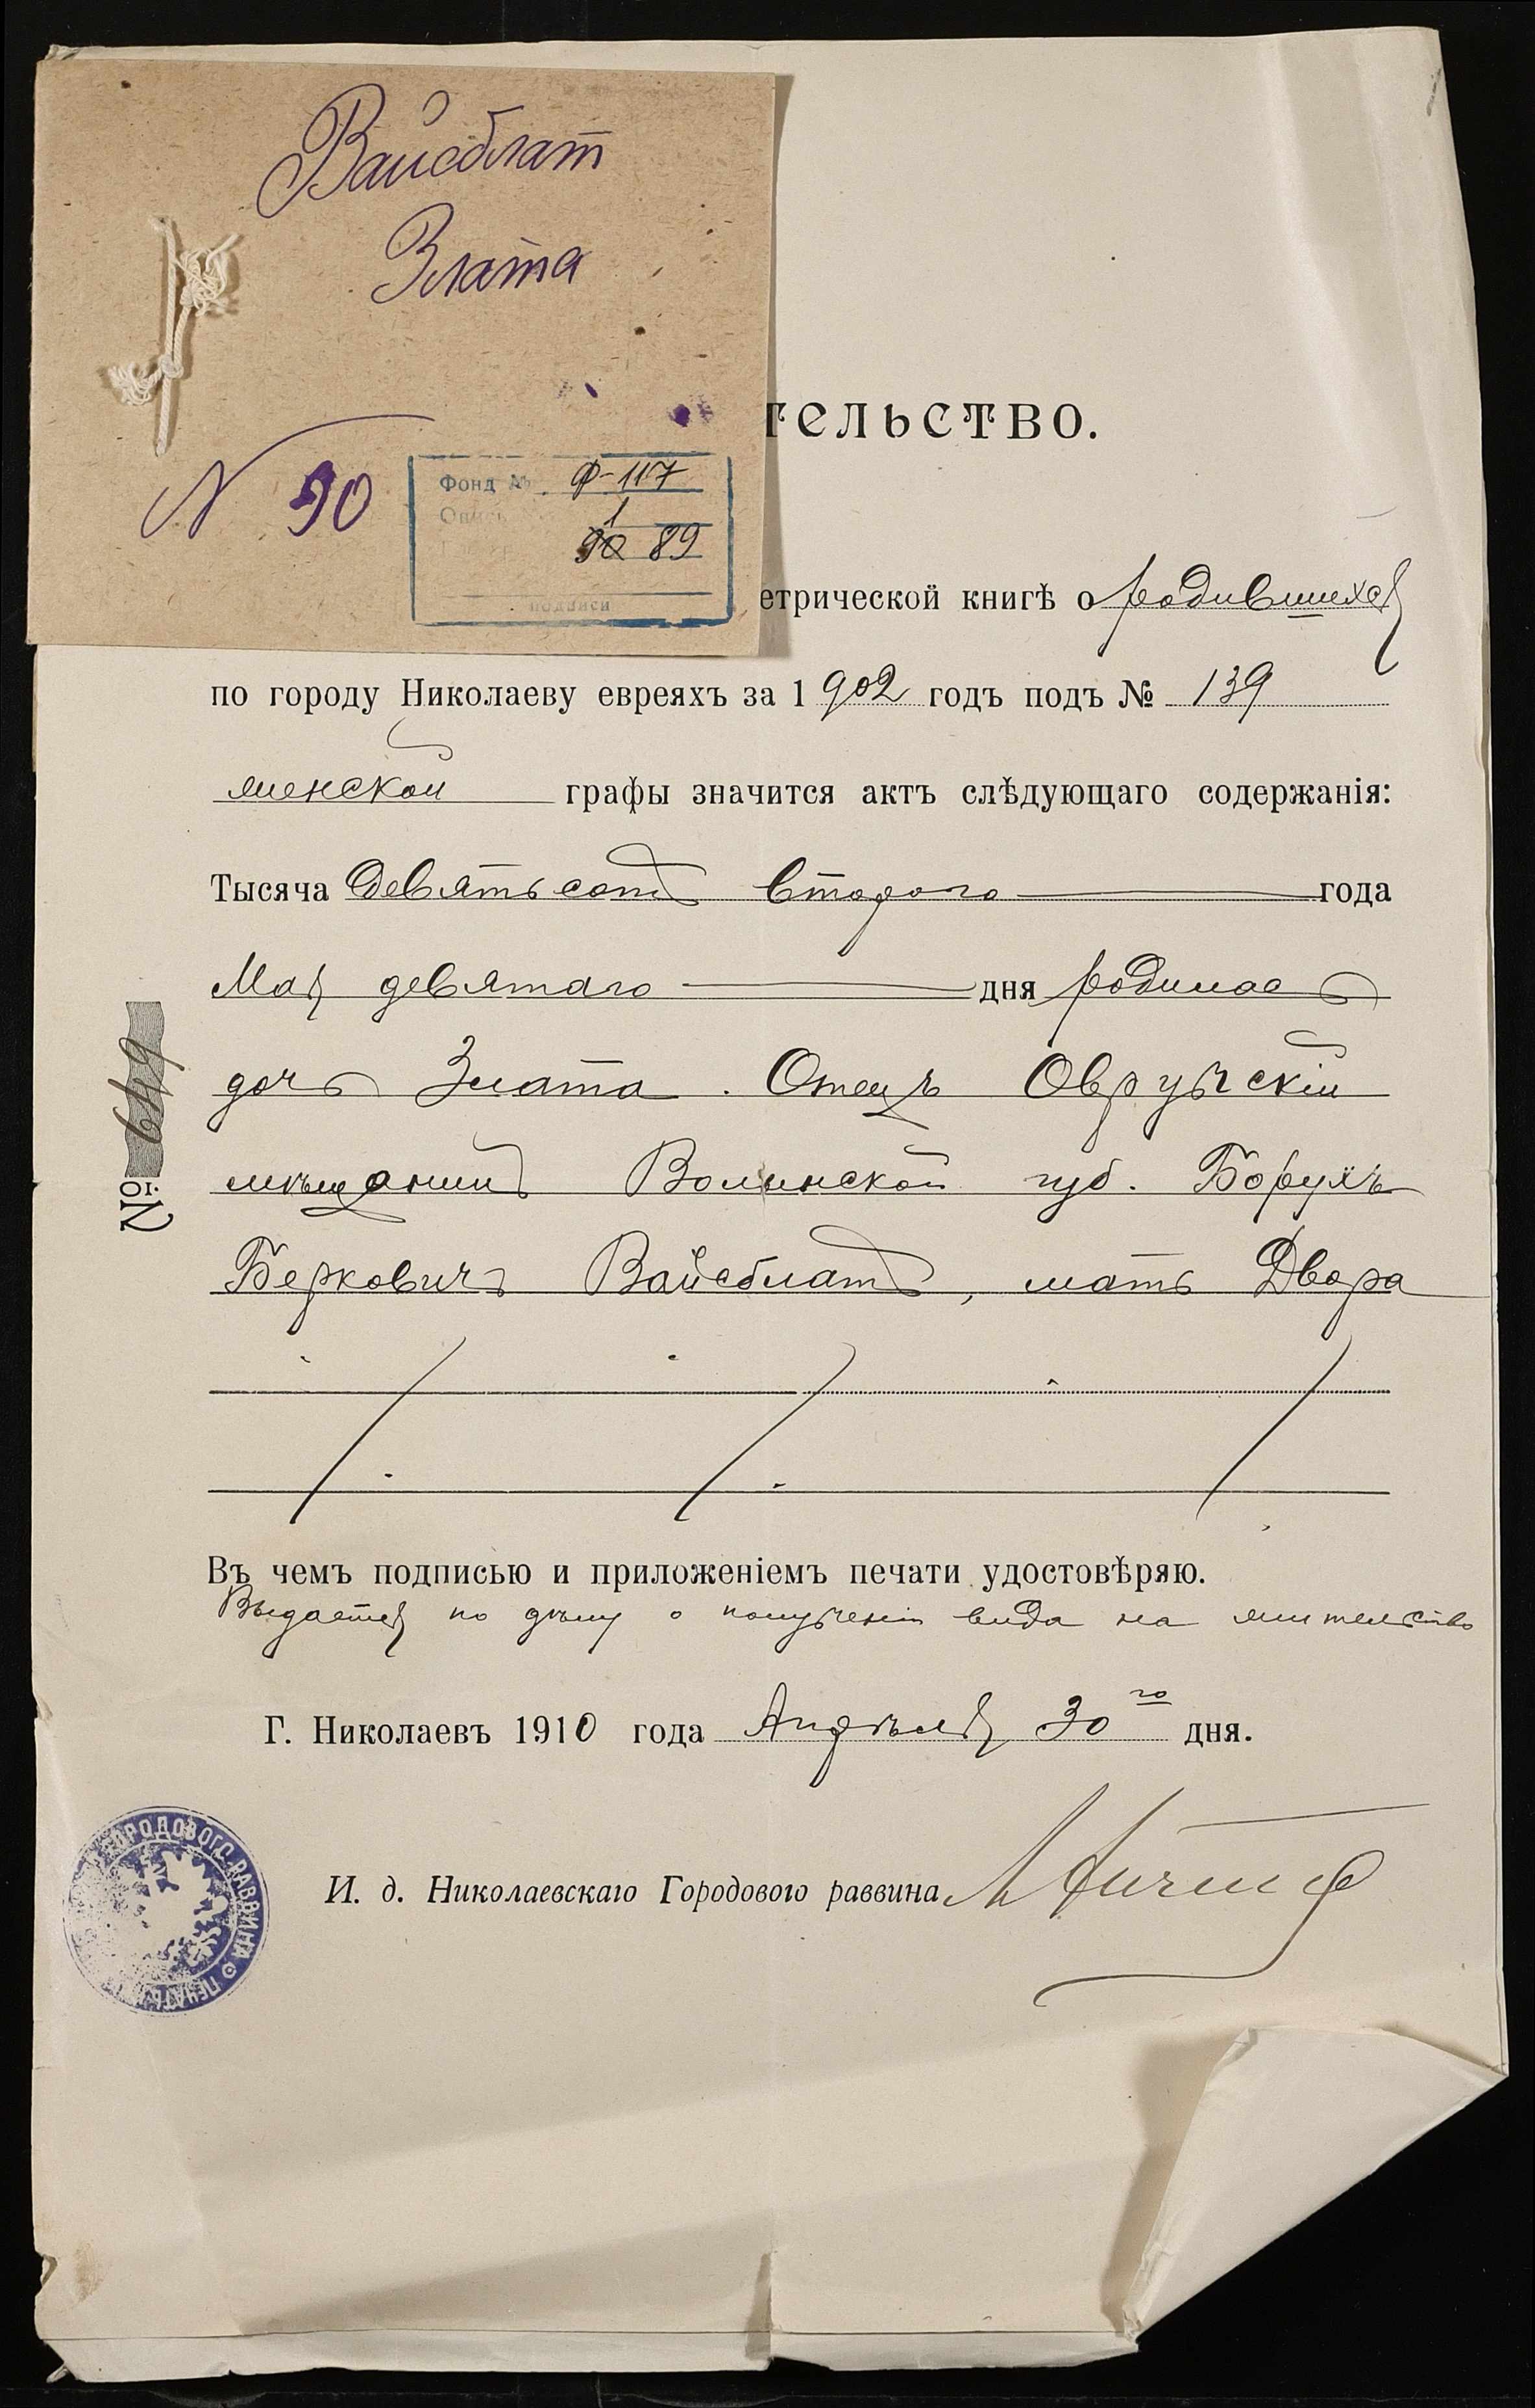 Вайсблат
Злата
N 90
Фонд № Ф-117
Опись 1
90 89
подписи
тельство.
етрической книгѣ о родившихся
по городу Николаеву евреяхъ за 1902 годъ подъ № 139
женской графы значится актъ слѣдующаго содержанія:
Тысяча девятьсотъ второго года
Мая девятаго дня родилась
дочь Злата. Отецъ Овручскій
мѣщанинъ Волынской губ. Борухъ
Берковичъ Вайсблатъ, мать Двора
Въ чемъ подписью и приложеніемъ печати удостовѣряю.
Выдается по дѣлу о полученіи вида на жительство
Г. Николаевъ 1910 года Апрѣля 30го дня.
И. д. Николаевскаго Городового раввина
№ 649
ГОРОДОВОГО РАВВИНА ПЕЧАТЬ